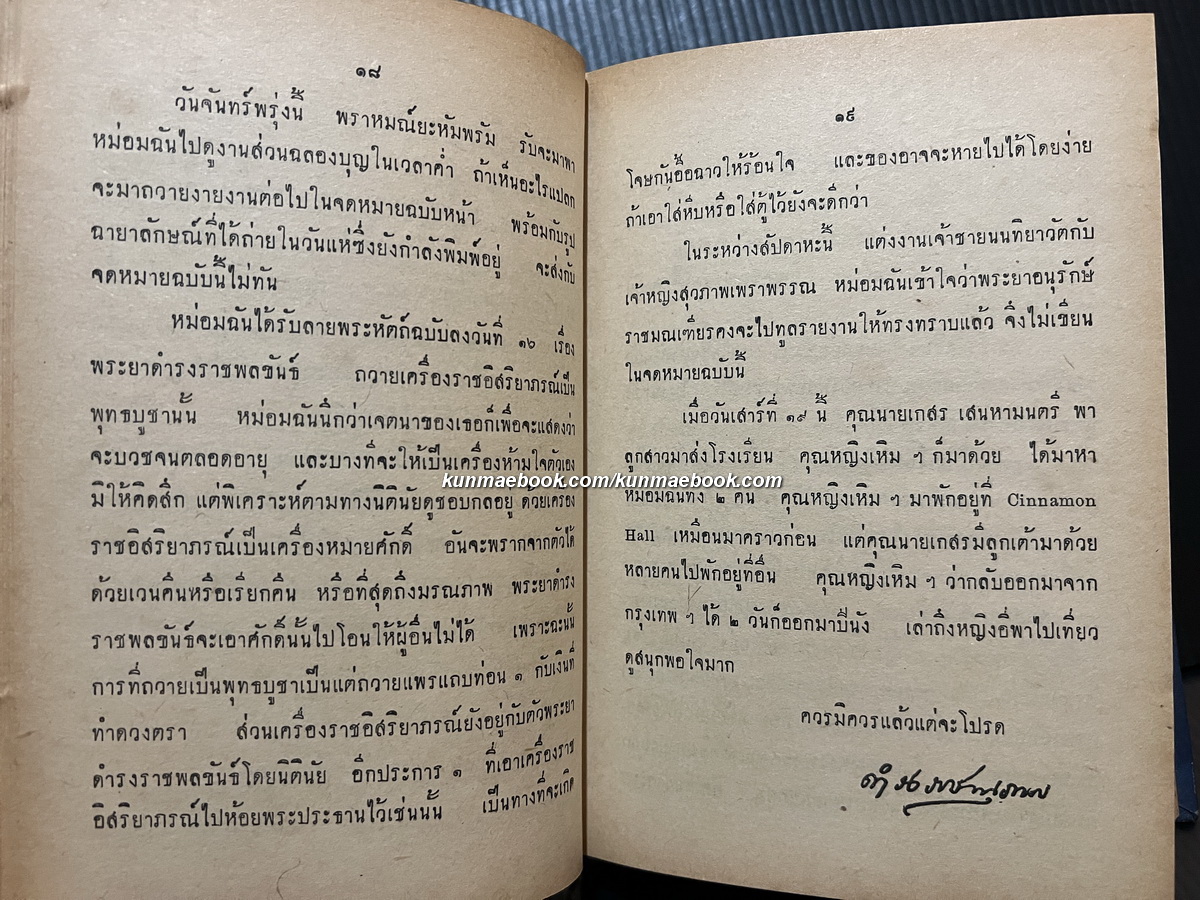 ๑๘
วันจันทร์พรุ่งนี้ พราหมณ์ยะหัมพรัม รับจะมาพา
หม่อมฉันไปดูงานส่วนฉลองบุญในเวลาค่ำ ถ้าเห็นอะไรแปลก
จะมาถวายงายงานต่อไปในจดหมายฉบับหน้า พร้อมกับรูป
ฉายาลักษณ์ที่ได้ถ่ายในวันแห่ซึ่งยังกำลังพิมพ์อยู่ จะส่งกับ
จดหมายฉบับนี้ไม่ทัน
หม่อมฉันได้รับลายพระหัตถ์ฉบับลงวันที่ ๑๖ เรื่อง
พระยาดำรงราชพลขันธ์ ถวายเครื่องราชอิสริยาภรณ์เป็น
พุทธบูชานั้น หม่อมฉันนึกว่าเจตนาของเธอก็เพื่อจะแสดงว่า
จะบวชจนตลอดอายุ และบางทีจะให้เป็นเครื่องห้ามใจตัวเอง
มิให้คิดสึก แต่พิเคราะห์ตามทางนิตินัยดูชอบกลอยู่ ด้วยเครื่อง
ราชอิสริยาภรณ์เป็นเครื่องหมายศักดิ์ อันจะพรากจากตัวได้
ด้วยเวนคืนหรือเรียกคืน หรือที่สุดถึงมรณภาพ พระยาดำรง
ราชพลขันธ์จะเอาศักดิ์นั้นไปโอนให้ผู้อื่นไม่ได้ เพราะฉะนั้น
การที่ถวายเป็นพุทธบูชาเป็นแต่ถวายแพรแถบท่อน ๑ กับเงินที่
ทำดวงตรา ส่วนเครื่องราชอิสริยาภรณ์ยังอยู่กับตัวพระยา
ดำรงราชพลขันธ์โดยนิตินัย อีกประการ ๑ ที่เอาเครื่องราช
อิสริยาภรณ์ไปห้อยพระประธานไว้เช่นนั้น เป็นทางที่จะเกิด
๑๙
โจษกันอื้อฉาวให้ร้อนใจ และของอาจจะหายไปได้โดยง่าย
ถ้าเอาใส่หีบหรือใส่ตู้ไว้ยังจะดีกว่า
ในระหว่างสัปดาหะนี้ แต่งงานเจ้าชายนนทิยาวัตกับ
เจ้าหญิงสุวภาพเพราพรรณ หม่อมฉันเข้าใจว่าพระยาอนุรักษ์
ราชมณเฑียรคงจะไปทูลรายงานให้ทรงทราบแล้ว จึงไม่เขียน
ในจดหมายฉบับนี้
เมื่อวันเสาร์ที่ ๑๙ นี้ คุณนายเกสร เสนหามนตรี พา
ลูกสาวมาส่งโรงเรียน คุณหญิงเหิม ๆ ก็มาด้วย ได้มาหา
หม่อมฉันทั้ง ๒ คน คุณหญิงเหิม ๆ มาพักอยู่ที่ Cinnamon
Hall เหมือนมาคราวก่อน แต่คุณนายเกสรมีลูกเต้ามาด้วย
หลายคนไปพักอยู่ที่อื่น คุณหญิงเหิม ๆ ว่ากลับออกมาจาก
กรุงเทพ ๆ ได้ ๒ วันก็ออกมาปีนัง เล่าถึงหญิงอี่พาไปเที่ยว
ดูสนุกพอใจมาก
ควรมิควรแล้วแต่จะโปรด
ดำรงราชานุภาพ
kunmaebook.com/kunmaebook.com